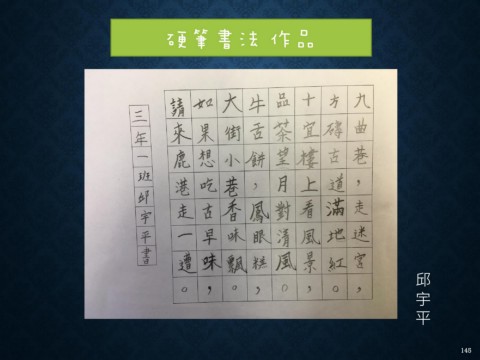 硬筆書法 作品
九曲巷，走迷宮，
方磚古道滿地紅。
十宜樓上看風景，
品茶望月對清風。
牛舌餅，鳳眼糕，
大街小巷香味飄。
如果想吃古早味，
請來鹿港走一遭。
三年一班邱宇平書
邱宇平
145